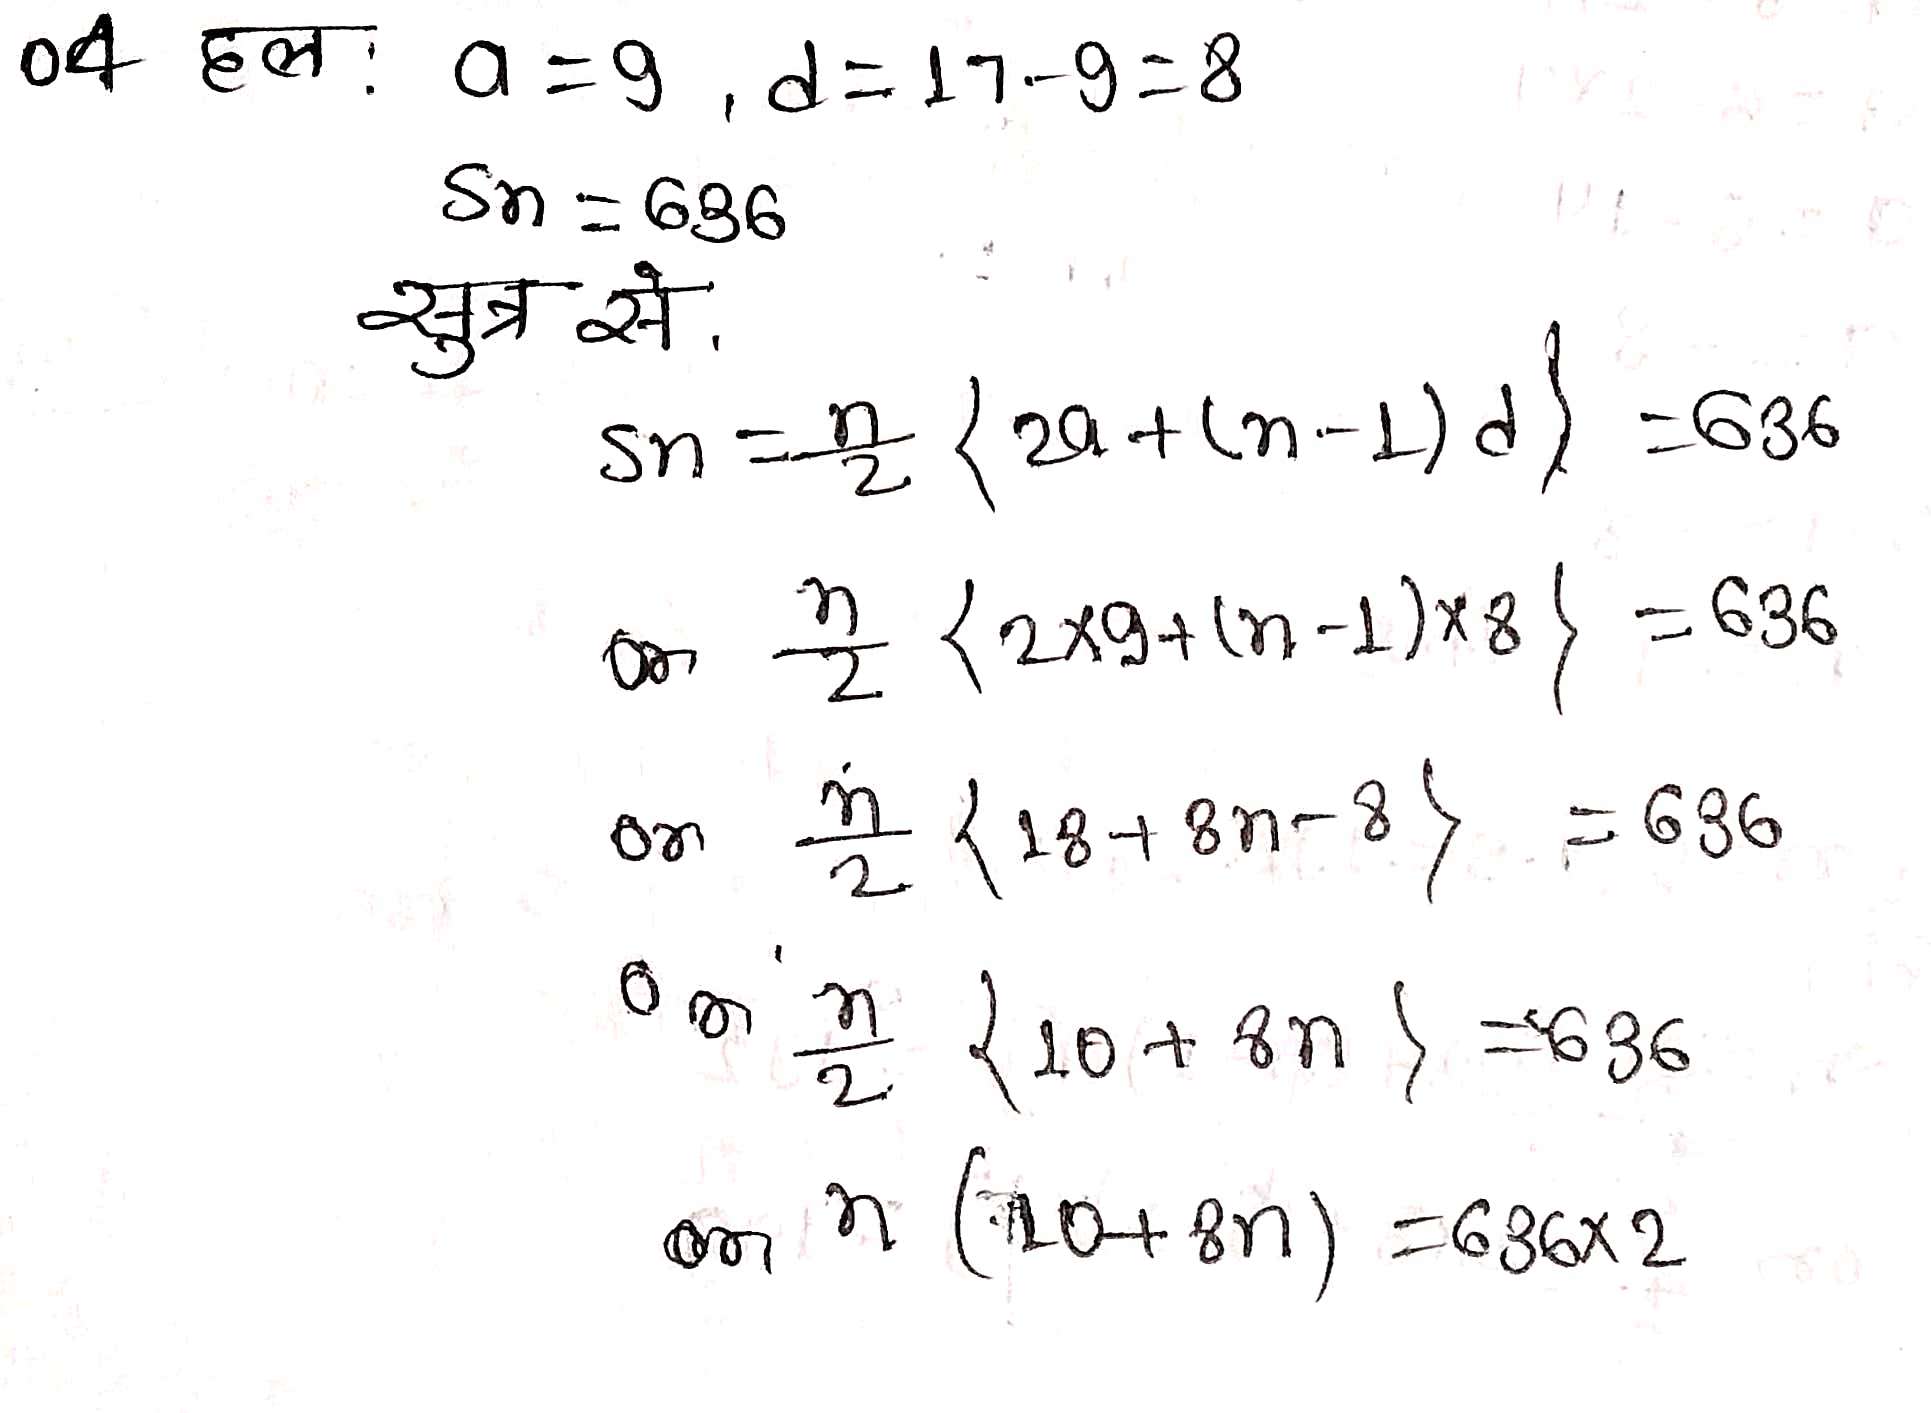 04 हल: a = 9, d = 17-9 = 8
Sn = 636
सुत्र से,
Sn = n/2 {2a + (n-1) d} = 636
or n/2 {2×9+(n-1)×8} = 636
or n/2 {18+8n-8} = 636
or n/2 {10+8n} = 636
or n (10+8n) = 636×2